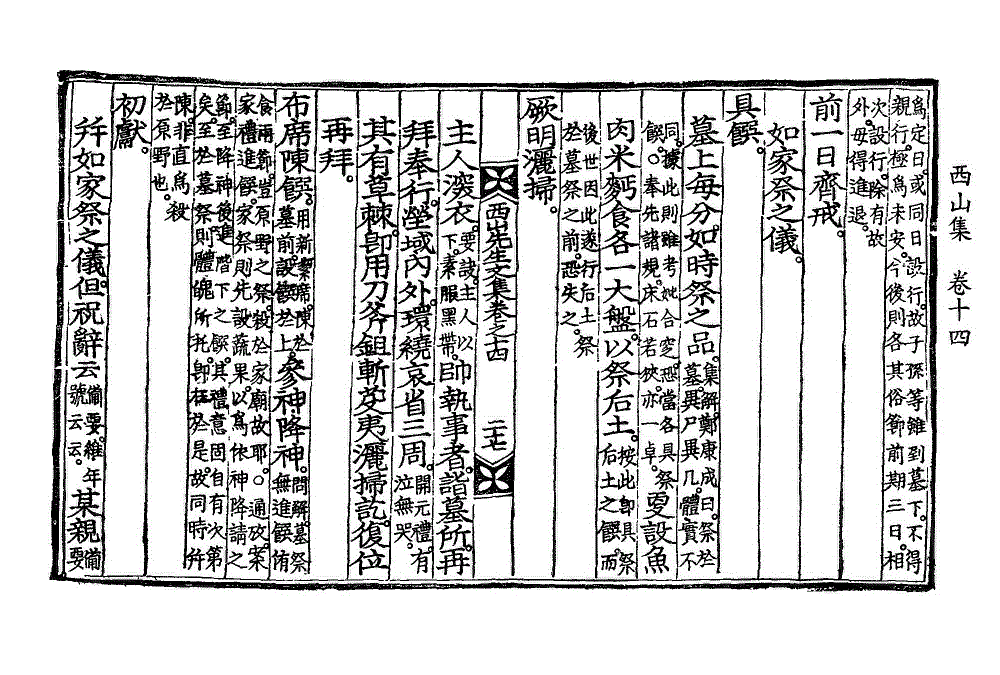 西山集 卷十四
爲定日。或同日設行。故子孫等雖到墓下。不得
親行。極爲未安。今後則各其俗節前期三日。相
次設行。除有故
外毋得進退。
前一日齊戒。
如家祭之儀。
具饌。
墓上每分。如時祭之品。集解。鄭康成曰。祭於墓。異尸異几。體實不
同。據此則雖考妣合窆。恐當各具祭饌。○奉先諸規。床石若狹。亦一卓。更設魚
肉米麪食各一大盤。以祭后土。按此卽具祭后土之饌。而
後世因此遂行后土祭
於墓祭之前。恐失之。
厥明灑掃。
西山先生文集卷之十四 二十七
主人深衣。要訣主人以下。素服黑帶。帥執事者。詣墓所。再
拜奉行。塋域內外。環繞哀省三周。開元禮有泣無哭。
其有草棘。卽用刀斧鉏斬芟夷。灑掃訖。復位
再拜。
布席陳饌。用新㓗席。陳於墓前。設饌於上。參神降神。問解。墓祭無進饌侑
食兩節。豈原野之祭。殺於家廟故耶。○通攷。案
家禮進饌。家祭則先設蔬果。以爲依神降請之
節。至降神後。進階下之饌。其禮意固自有次第
矣。至於墓祭。則體魄所托。卽在於是。故同時幷
陳。非直爲殺
於原野也。
初獻。
幷如家祭之儀。但祝辭云。備要。維年號云云。某親備要